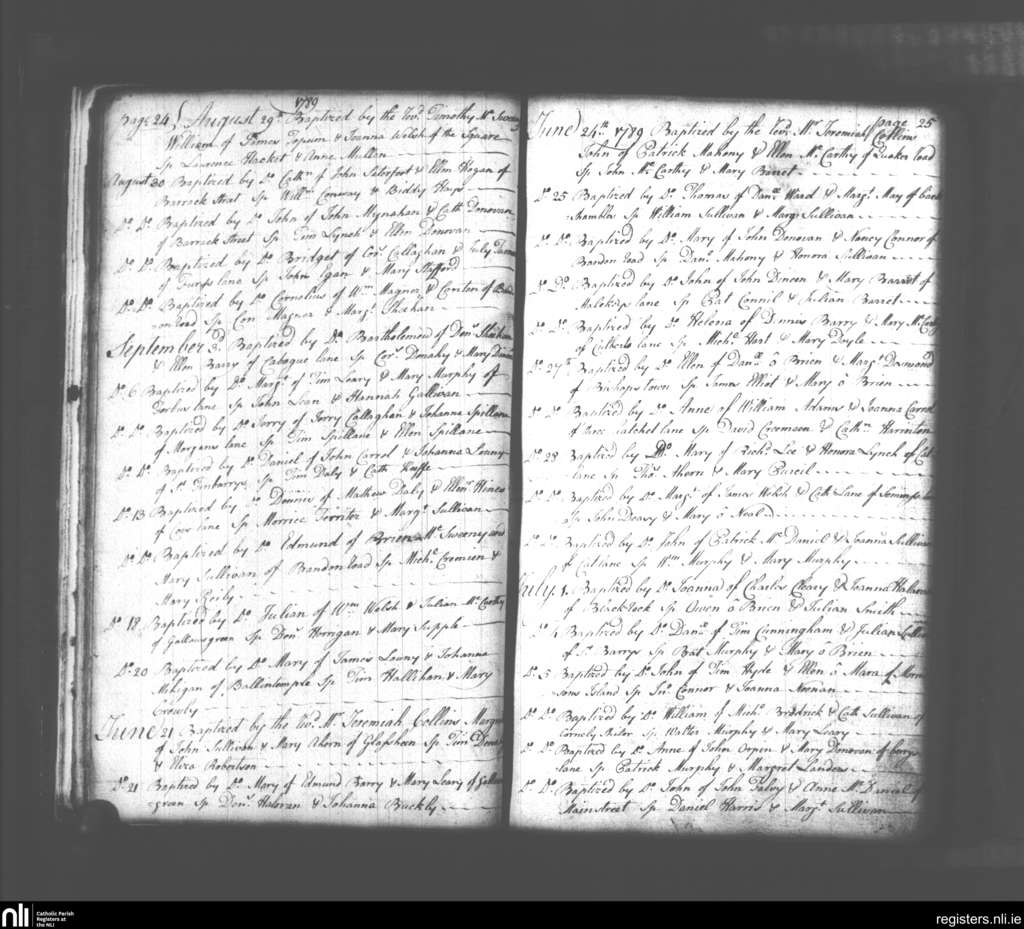 1789
Page 24 August 29th Baptized by the Revd. Timothy Mc Sweeny
William of James & Joanna Welsh of the Square
Sp Laurence Hacket & Anne Mullan
August 30 Baptized by Do. Cathn. of John & Ellen Hogan of
Barrack Street Sp Willm. Conway & Biddy
Do. Do. Baptized by Do. John of John Mynahan & Cath Donovan
of Barrack Street Sp Tim Lynch & Ellen Donovan
Do. Do. Baptized by Do. Bridget of Cors. Callaghan & July
of lane Sp John Egan & Mary Stafford
Do. Do. Baptized by Do. Cornelius of Wm Magner & of
road Sp Con Magner & Margt. Sheehan
September 3d. Baptized by Do. Bartholomew of Denis Sheehan
& Ellen Barry of Cabbage lane Sp Cors. Donahy & Mary
Do. 6 Baptized by Do. Margt. of Tim Leary & Mary Murphy of
Porters lane Sp John & Hannah Gallivan
Do. Do. Baptized by Do. Jerry of Jerry Callaghan & Johanna Spillane
of Morgans lane Sp Tim Spillane & Ellen Spillane
Do. Do. Baptized by Do. Daniel of John Carrol & Johanna
of St. Finbarrys Sp Tim Daly & Cath Keeffe
Do. 13 Baptized by Do. Dennis of Mathew Daly & Ellen Hines
of Cow lane Sp Morrice Territer & Margt. Sullivan
Do. Do. Baptized by Do. Edmund of Brien Mc. Sweeny and
Mary Sullivan of Brandon load Sp Michl. Cremien &
Mary
Do. 18 Baptized by Do. Julian of Wm Welsh & Julian Mc. Carthy
of Gallows green Sp Denis Horrigan & Mary Supple
Do. 20 Baptized by Do. Mary of James & Johanna
Mehigan of Ballintemple Sp Tim Hallihan & Mary
Crowly
June 21 Baptized by the Revd. Mr. Jeremiah Collins
of John Sullivan & Mary Ahern of Glasheen Sp Tim
& Eliza Robertson
Do. 21 Baptized by Do. Mary of Edmund Barry & Mary Leary of Gallows
green Sp Denis Haloran & Johanna Buckly
page 25
June 24th 1789 Baptized by the Revd. Mr Jeremiah Collins
John of Patrick Mahony & Ellen Mc. Carthy of Quaker load
Sp John Mc. Carthy & Mary Barret
Do. 25 Baptized by Do. Thomas of Danl. Ward & Margt. May of back
shambles Sp William Sullivan & Margt Sullivan
Do. Do. Baptized by Do. Mary of John Donovan & Nancy Connor of
Brandon load Sp Danl. Mahony & Honora Sullivan
Do. Do. Baptized by Do. John of John Dineen & Mary Barret of
lane Sp Pat Connil & Julian Barret
Do. Do. Baptized by Do. Helena of Dinnis Barry & Mary Mc. Carthy
of lane Sp Michl. Hart & Mary Doyle
Do. 27th Baptized by Do. Ellen of Danl. o Brien & Margt. Desmond
of Bishops town Sp James Elliot & Mary o Brien
Do. Do. Baptized by Do. Anne of William Adams & Joanna Carrol
of three hatchet lane Sp David & Cathn. Harrinton
Do. 28 Baptized by Do. Mary of Richd. Lee & Honora Lynch of Cat
lane Sp Thos. Ahern & Mary Purcil
Do. Do. Baptized by Do. Margt. of James Welsh & Cath Lane of
Sp John Deasy & Mary o Neal
Do. Do. Baptized by Do. John of Patrick Mc. Daniel & Joanna Sullivan
of Cat lane Sp Wm Murphy & Mary Murphy
July 1. Baptized by Do. Joanna of Charles Cleary & Joanna
of Blackrock Sp Owen o Brien & Julian Smith
Do. 4 Baptized by Do. Danl. of Tim Cunningham & Julian
of St. Barrys Sp Bat Murphy & Mary o Brien
Do. 5 Baptized by Do. John of Tim Hyde & Ellen o Mara of
sons Island Sp Jno. Connor & Joanna Noonan
Do. Do. Baptized by Do. William of Michl. Brodrick & Cath Sullivan of
Sp Walter Murphy & Mary Leary
Do. Do. Baptized by Do. Anne of John Orpen & Mary Donovan of
lane Sp Patrick Murphy & Margret Landers
Do. Do. Baptized by Do. John of John Falvy & Anne Mc. Daniel of
Main Street Sp Daniel Harris & Margt. Sullivan
nli Catholic Parish
Registers at
the NLI
registers.nli.ie